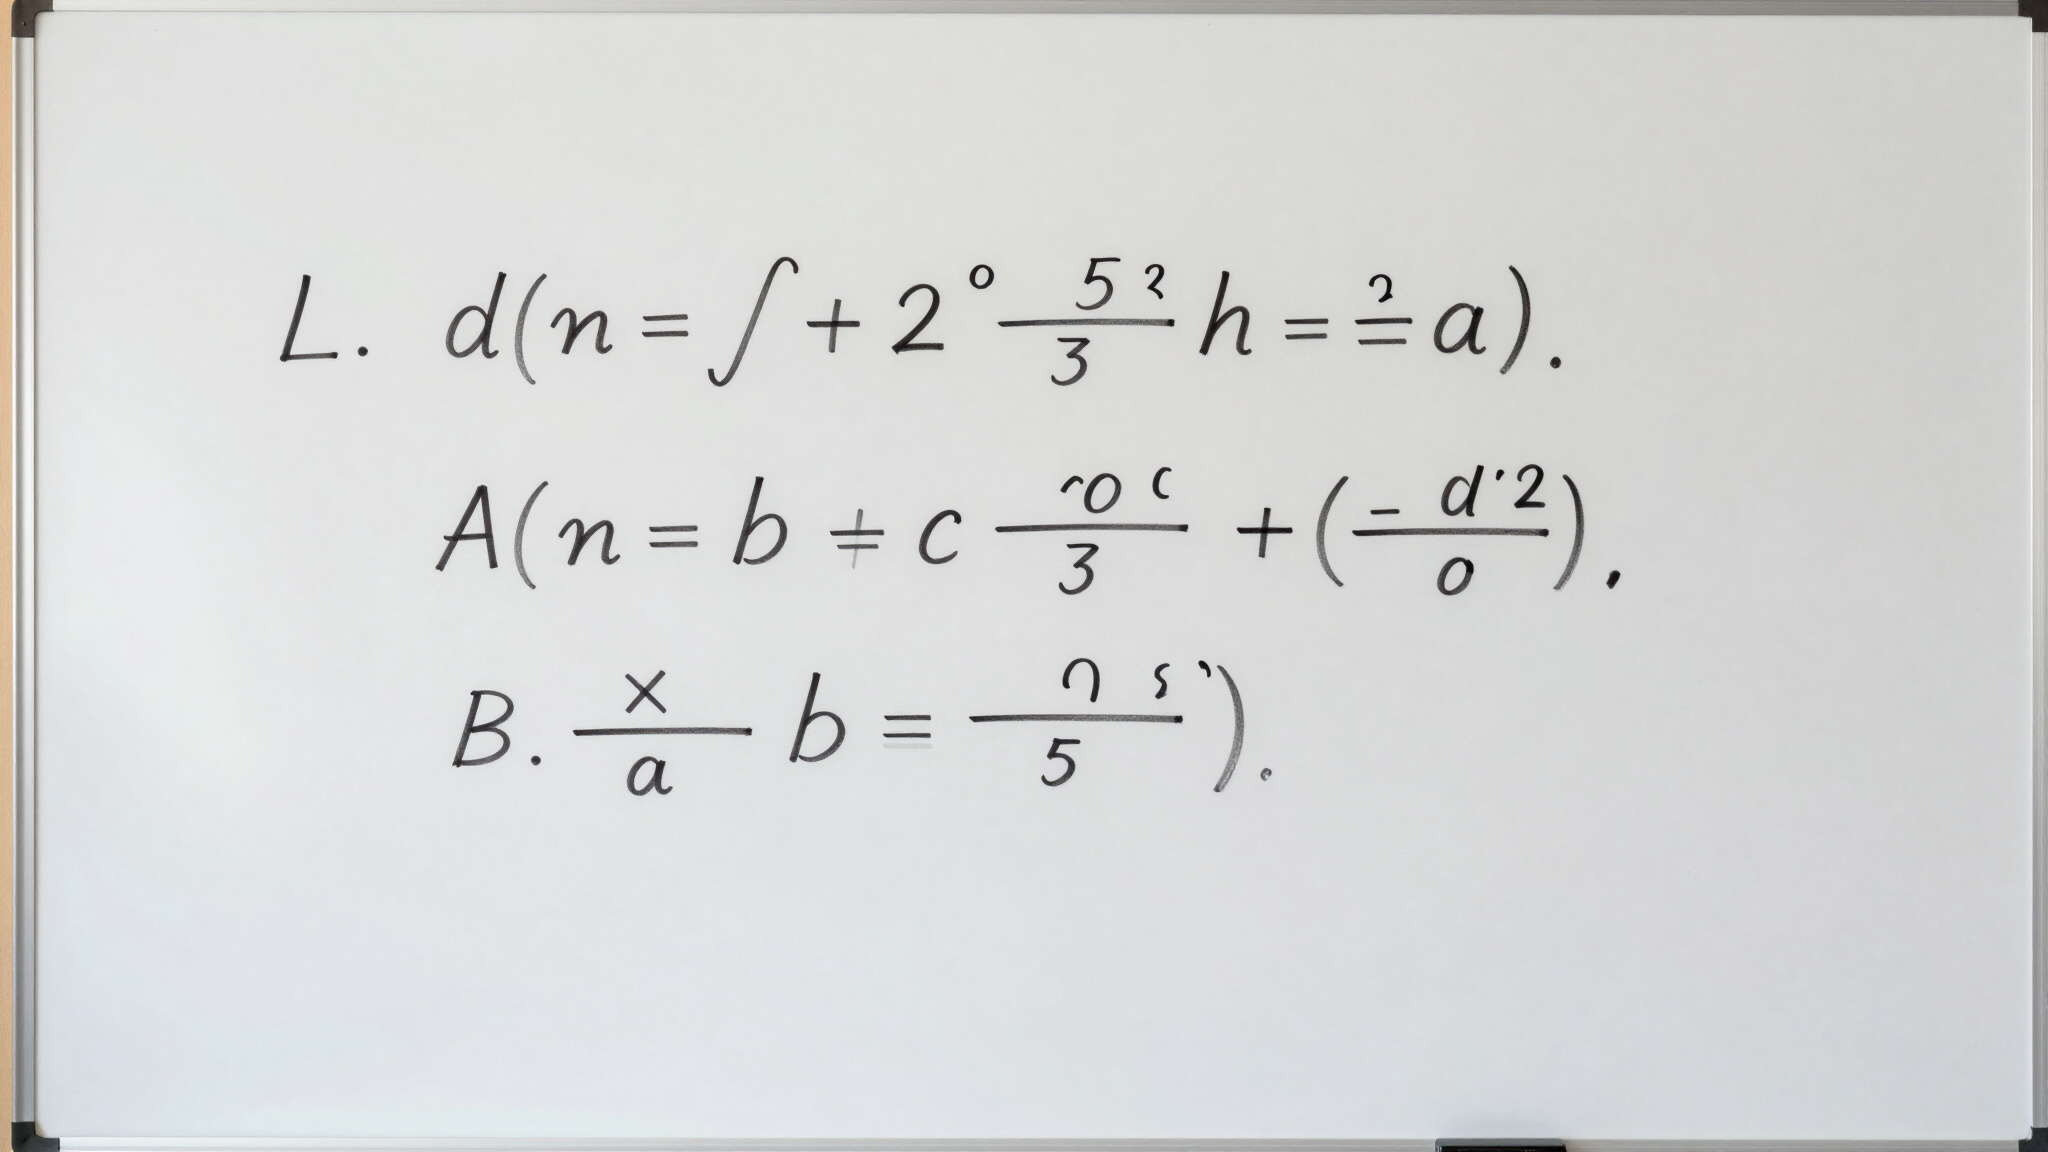 L. d(n = ∫ + 2° 5²/3 h = ²= a).
A(n = b + c 0 c/3 + (- d·2/0).
B. x/a b = n s'/5).